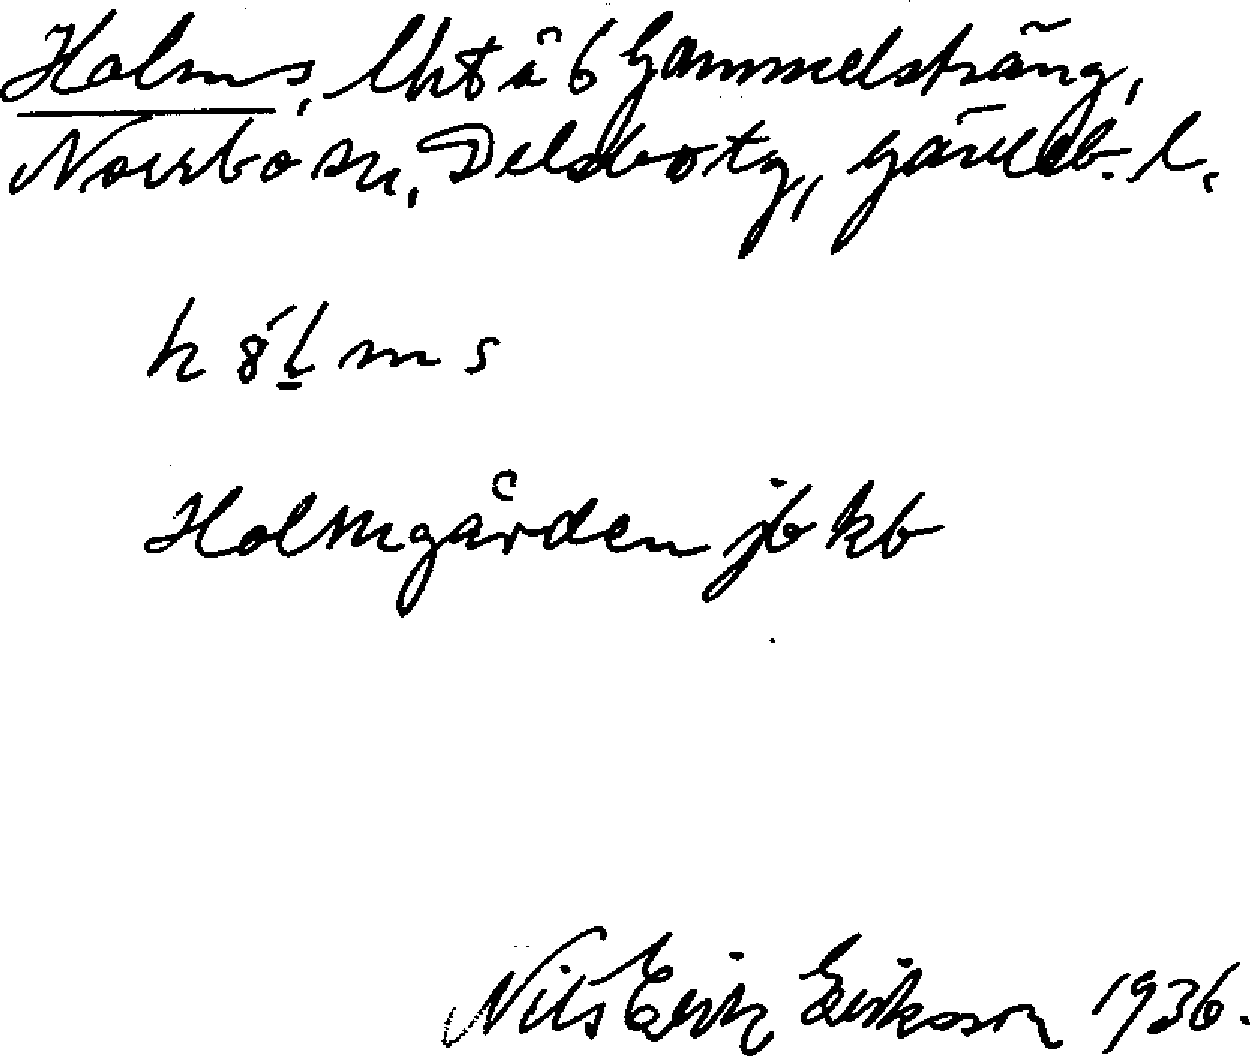 Holms, lht å 6 Gammelsträng,
Norrbo sn, Delsbo tg, Gävleb. l.
Holmgården jb kb
Nils Erik Eriksson 1936.